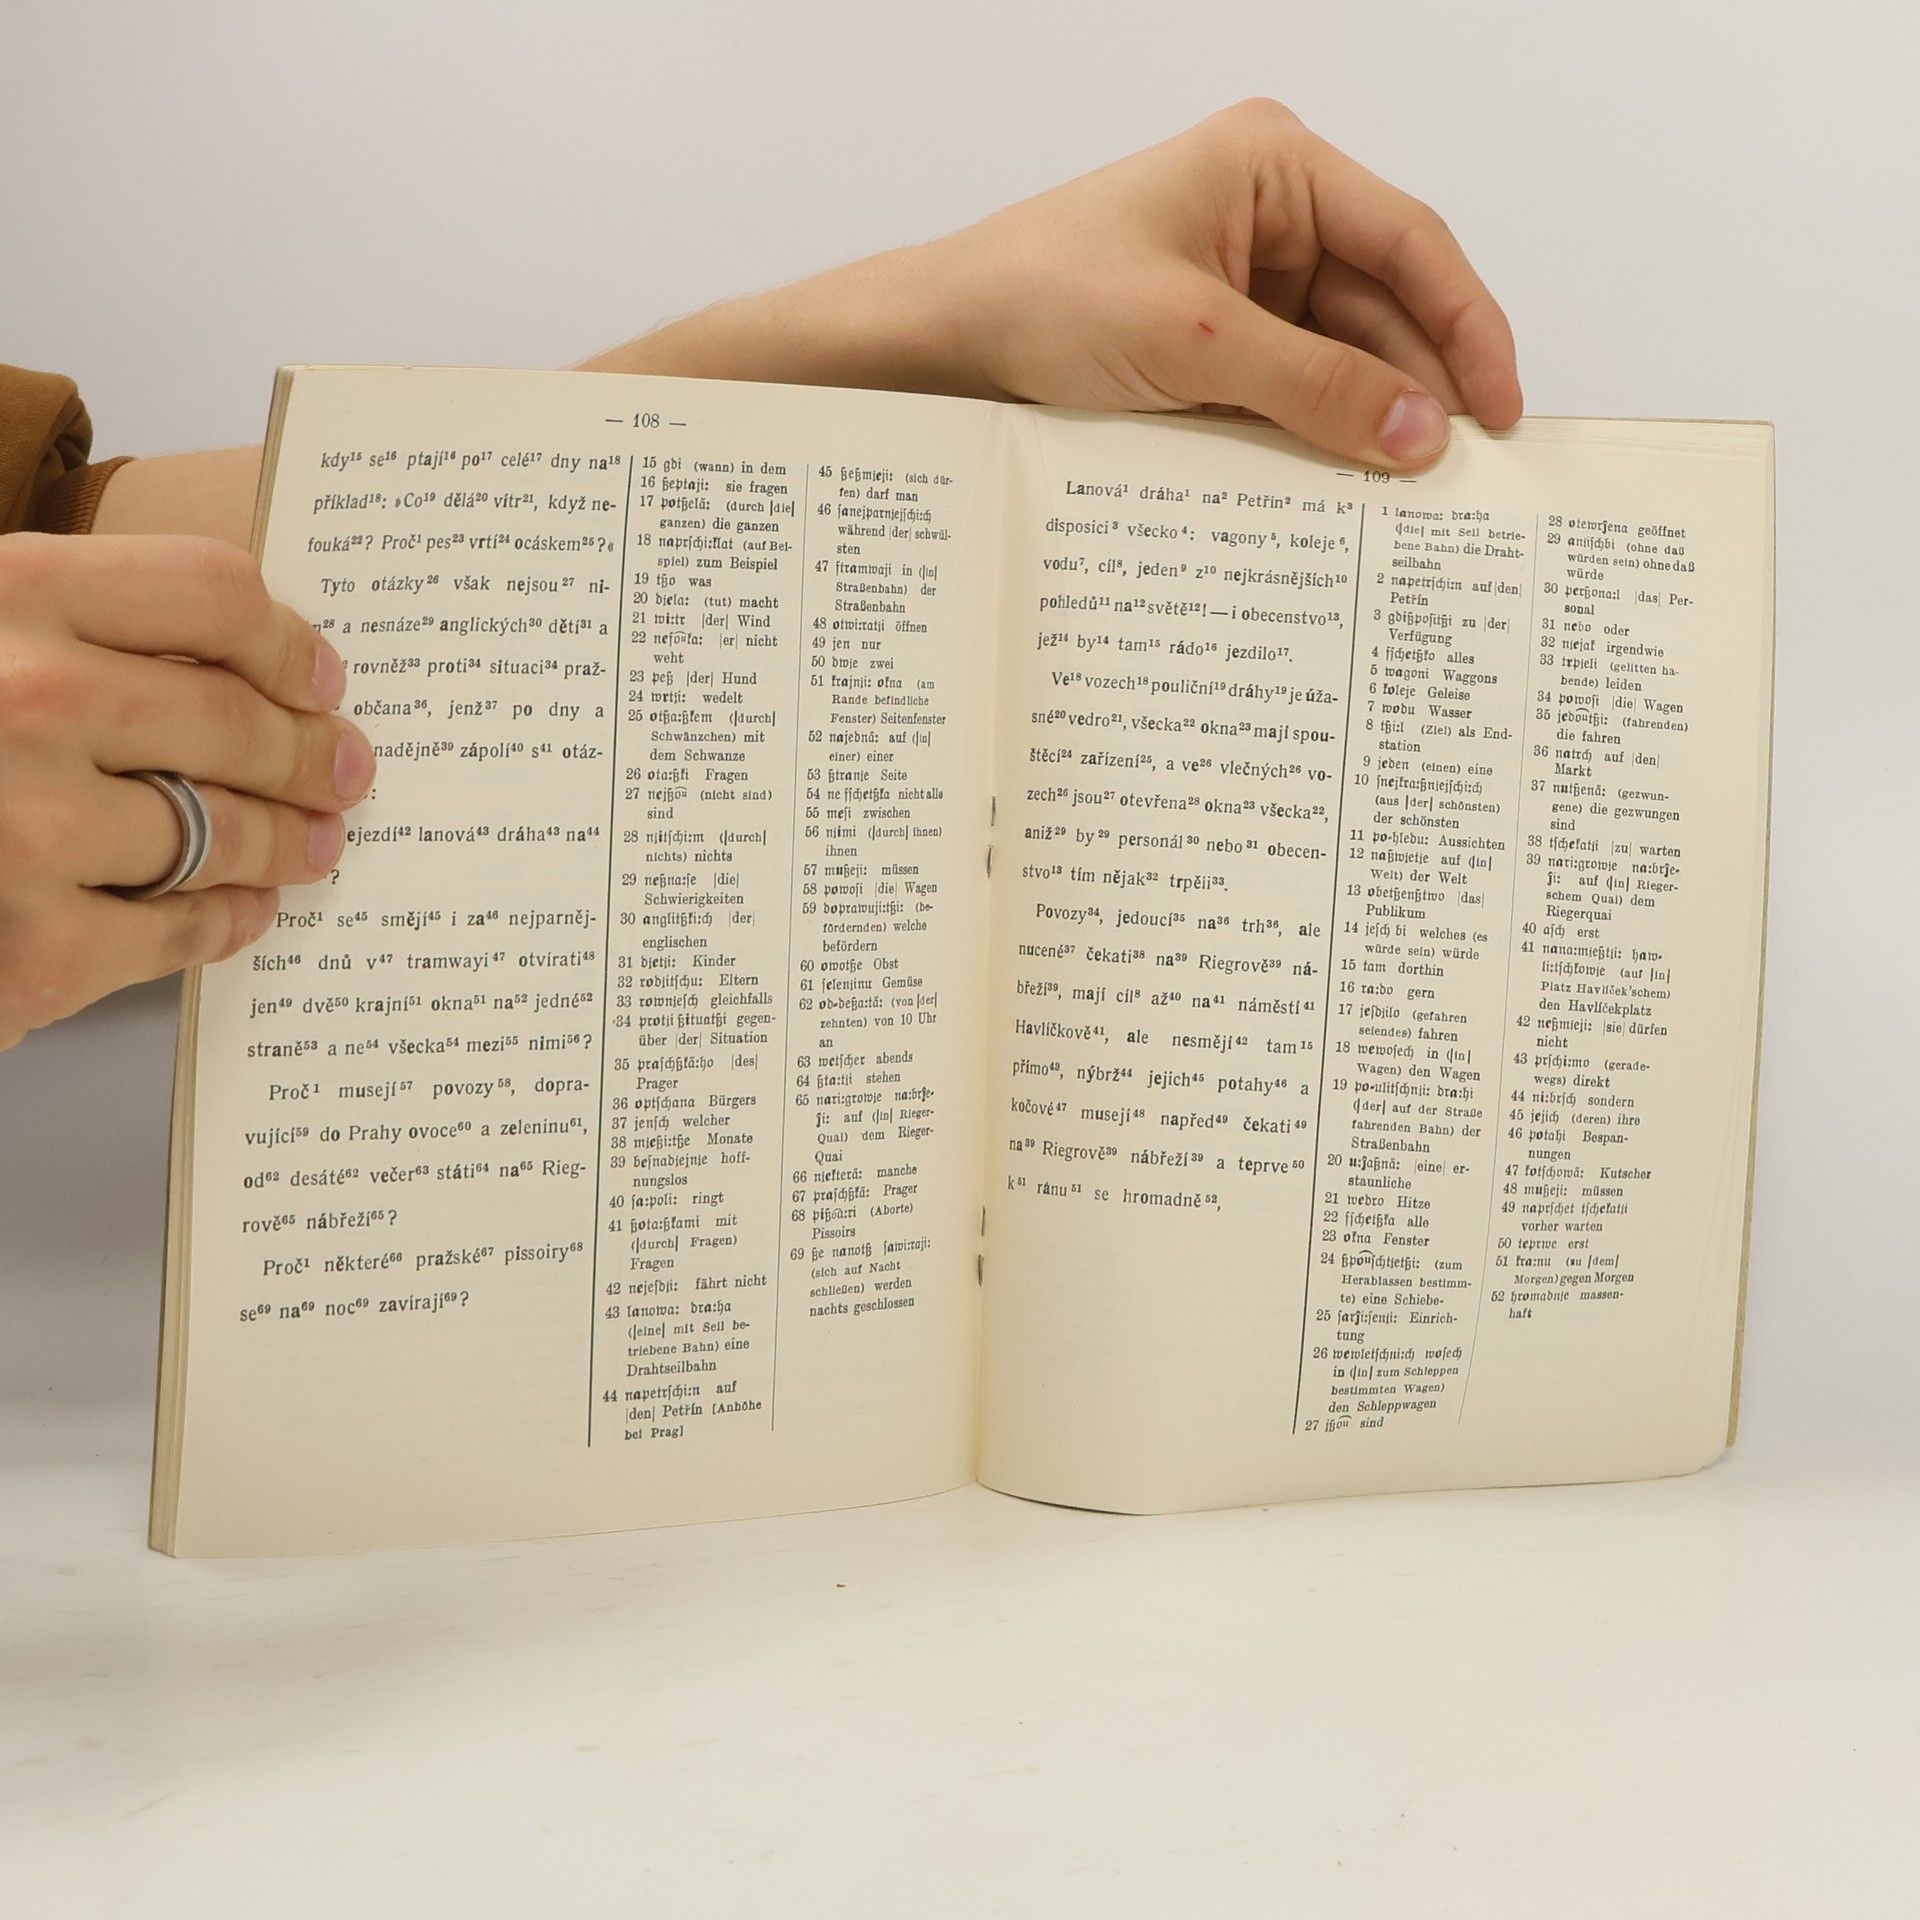 — 108 —
kdy¹⁵ se¹⁶ ptají¹⁶ po¹⁷ celé¹⁷ dny na¹⁸
příklad¹⁸: »Co¹⁹ dělá²⁰ vítr²¹, když ne-
fouká²²? Proč¹ pes²³ vrtí²⁴ ocáskem²⁵?«
Tyto otázky²⁶ však nejsou²⁷ ni-
²⁸ a nesnáze²⁹ anglických³⁰ dětí³¹ a
rovněž³³ proti³⁴ situaci³⁴ praž-
občana³⁶, jenž³⁷ po dny a
nadějně³⁹ zápolí⁴⁰ s⁴¹ otáz-
:
ejezdí⁴² lanová⁴³ dráha⁴³ na⁴⁴
?
Proč¹ se⁴⁵ smějí⁴⁵ i za⁴⁶ nejparněj-
ších⁴⁶ dnů v⁴⁷ tramwayi⁴⁷ otvírati⁴⁸
jen⁴⁹ dvě⁵⁰ krajní⁵¹ okna⁵¹ na⁵² jedné⁵²
straně⁵³ a ne⁵⁴ všecka⁵⁴ mezi⁵⁵ nimi⁵⁶?
Proč¹ musejí⁵⁷ povozy⁵⁸, dopra-
vující⁵⁹ do Prahy ovoce⁶⁰ a zeleninu⁶¹,
od⁶² desáté⁶² večer⁶³ státi⁶⁴ na⁶⁵ Rieg-
rově⁶⁵ nábřeží⁶⁵?
Proč¹ některé⁶⁶ pražské⁶⁷ pissoiry⁶⁸
se⁶⁹ na⁶⁹ noc⁶⁹ zavírají⁶⁹?
15 gdi (wann) in dem
16 ßeptaji: sie fragen
17 potßelä: (durch |die|
ganzen) die ganzen
18 naprſchi:klat (auf Bei-
spiel) zum Beispiel
19 tßo was
20 djela: (tut) macht
21 wi:tr |der| Wind
22 nefoula: |er| nicht
weht
23 peß |der| Hund
24 wrtji: wedelt
25 otßa:ßkem (|durch|
Schwänzchen) mit
dem Schwanze
26 ota:ßki Fragen
27 nejßou (nicht sind)
sind
28 njitſchi:m (|durch|
nichts) nichts
29 neßna:ſe |die|
Schwierigkeiten
30 anglitßki:ch |der|
englischen
31 djetji: Kinder
32 rodjitſchu: Eltern
33 rownjeſch gleichfalls
34 protji ßituatßi gegen-
über |der| Situation
35 praſchßkä:ho |des|
Prager
36 optſchana Bürgers
37 jenſch welcher
38 mjeßi:tße Monate
39 beſnadjejnje hoff-
nungslos
40 ſa:poli: ringt
41 ßota:ßkami mit
(|durch| Fragen)
Fragen
42 nejeſdji: fährt nicht
43 lanowa: dra:ha
(|eine| mit Seil be-
triebene Bahn) eine
Drahtseilbahn
44 napetrſchi:n auf
|den| Petřín [Anhöhe
bei Prag]
45 ßeßmjeji: (sich dür-
fen) darf man
46 ſanejparnjejſchi:ch
während |der| schwül-
sten
47 ftramwaji in (|in|
Straßenbahn) der
Straßenbahn
48 otwi:ratji öffnen
49 jen nur
50 dwje zwei
51 krajnji: okna (am
Rande befindliche
Fenster) Seitenfenster
52 najednä: auf (|in|
einer) einer
53 ßtranje Seite
54 ne fſchetßka nicht alle
55 meſi zwischen
56 njimi (|durch| ihnen)
ihnen
57 mußeji: müssen
58 powoſi |die| Wagen
59 doprawuji:tßi: (be-
fördernden) welche
befördern
60 owotße Obst
61 ſelenjinu Gemüse
62 od-deßa:tä: (von |der|
zehnten) von 10 Uhr
an
63 wetſcher abends
64 ßta:tji stehen
65 nari:growje na:brſe-
ſi: auf (|in| Rieger-
Quai) dem Rieger-
Quai
66 njekterä: manche
67 praſchßkä: Prager
68 pißoa:ri (Aborte)
Pissoirs
69 ße nanotß ſawi:raji:
(sich auf Nacht
schließen) werden
nachts geschlossen
— 109 —
Lanová¹ dráha¹ na² Petřín² má k³
disposici³ všecko⁴: vagony⁵, koleje⁶,
vodu⁷, cíl⁸, jeden⁹ z¹⁰ nejkrásnějších¹⁰
pohledů¹¹ na¹² světě¹²! — i obecenstvo¹³,
jež¹⁴ by¹⁴ tam¹⁵ rádo¹⁶ jezdilo¹⁷.
Ve¹⁸ vozech¹⁸ pouliční¹⁹ dráhy¹⁹ je úža-
sné²⁰ vedro²¹, všecka²² okna²³ mají spou-
štěcí²⁴ zařízení²⁵, a ve²⁶ vlečných²⁶ vo-
zech²⁶ jsou²⁷ otevřena²⁸ okna²³ všecka²²,
aniž²⁹ by²⁹ personál³⁰ nebo³¹ obecen-
stvo¹³ tím nějak³² trpěli³³.
Povozy³⁴, jedoucí³⁵ na³⁶ trh³⁶, ale
nucené³⁷ čekati³⁸ na³⁹ Riegrově³⁹ ná-
břeží³⁹, mají cíl⁸ až⁴⁰ na⁴¹ náměstí⁴¹
Havlíčkově⁴¹, ale nesmějí⁴² tam¹⁵
přímo⁴³, nýbrž⁴⁴ jejich⁴⁵ potahy⁴⁶ a
kočové⁴⁷ musejí⁴⁸ napřed⁴⁹ čekati⁴⁹
na³⁹ Riegrově³⁹ nábřeží³⁹ a teprve⁵⁰
k⁵¹ ránu⁵¹ se hromadně⁵²,
1 lanowa: dra:ha
(|die| mit Seil betrie-
bene Bahn) die Draht-
seilbahn
2 napetrſchi:n auf |den|
Petřín
3 gdißpoſitßi zu |der|
Verfügung
4 fſchetßko alles
5 wagoni Waggons
6 koleje Geleise
7 wodu Wasser
8 tßi:l (Ziel) als End-
station
9 jeden (einen) eine
10 ſnejkra:ßnjejſchi:ch
(aus |der| schönsten)
der schönsten
11 po-hledu: Aussichten
12 naßwjetje auf (|in|
Welt) der Welt
13 obetßenßtwo |das|
Publikum
14 jeſch bi welches (es
würde sein) würde
15 tam dorthin
16 ra:do gern
17 jeſdjilo (gefahren
seiendes) fahren
18 wewoſech in (|in|
Wagen) den Wagen
19 po-ulitſchnji: dra:hi
(|der| auf der Straße
fahrenden Bahn) der
Straßenbahn
20 u:ſaßnä: |eine| er-
staunliche
21 wedro Hitze
22 fſchetßka alle
23 okna Fenster
24 ßpouſchtjetßi: (zum
Herablassen bestimm-
te) eine Schiebe-
25 ſarſi:ſenji: Einrich-
tung
26 wewletſchni:ch woſech
in (|in| zum Schleppen
bestimmten Wagen)
den Schleppwagen
27 jßou sind
28 otewrſena geöffnet
29 anjiſchbi (ohne daß
würden sein) ohne daß
würde
30 perßona:l |das| Per-
sonal
31 nebo oder
32 njejak irgendwie
33 trpjeli (gelitten ha-
bende) leiden
34 powoſi |die| Wagen
35 jedoutßi: (fahrenden)
die fahren
36 natrch auf |den|
Markt
37 nutßenä: (gezwun-
gene) die gezwungen
sind
38 tſchekatji |zu| warten
39 nari:growje na:brſe-
ſi: auf (|in| Rieger-
schem Quai) dem
Riegerquai
40 aſch erst
41 nana:mjeßtji: haw-
li:tſchkowje (auf |in|
Platz Havlíček'schem)
den Havlíčekplatz
42 neßmjeji: |sie| dürfen
nicht
43 prſchi:mo (gerade-
wegs) direkt
44 ni:brſch sondern
45 jejich (deren) ihre
46 potahi Bespan-
nungen
47 kotſchowä: Kutscher
48 mußeji: müssen
49 naprſchet tſchekatji
vorher warten
50 teprwe erst
51 kra:nu (zu |dem|
Morgen) gegen Morgen
52 hromadnje massen-
haft